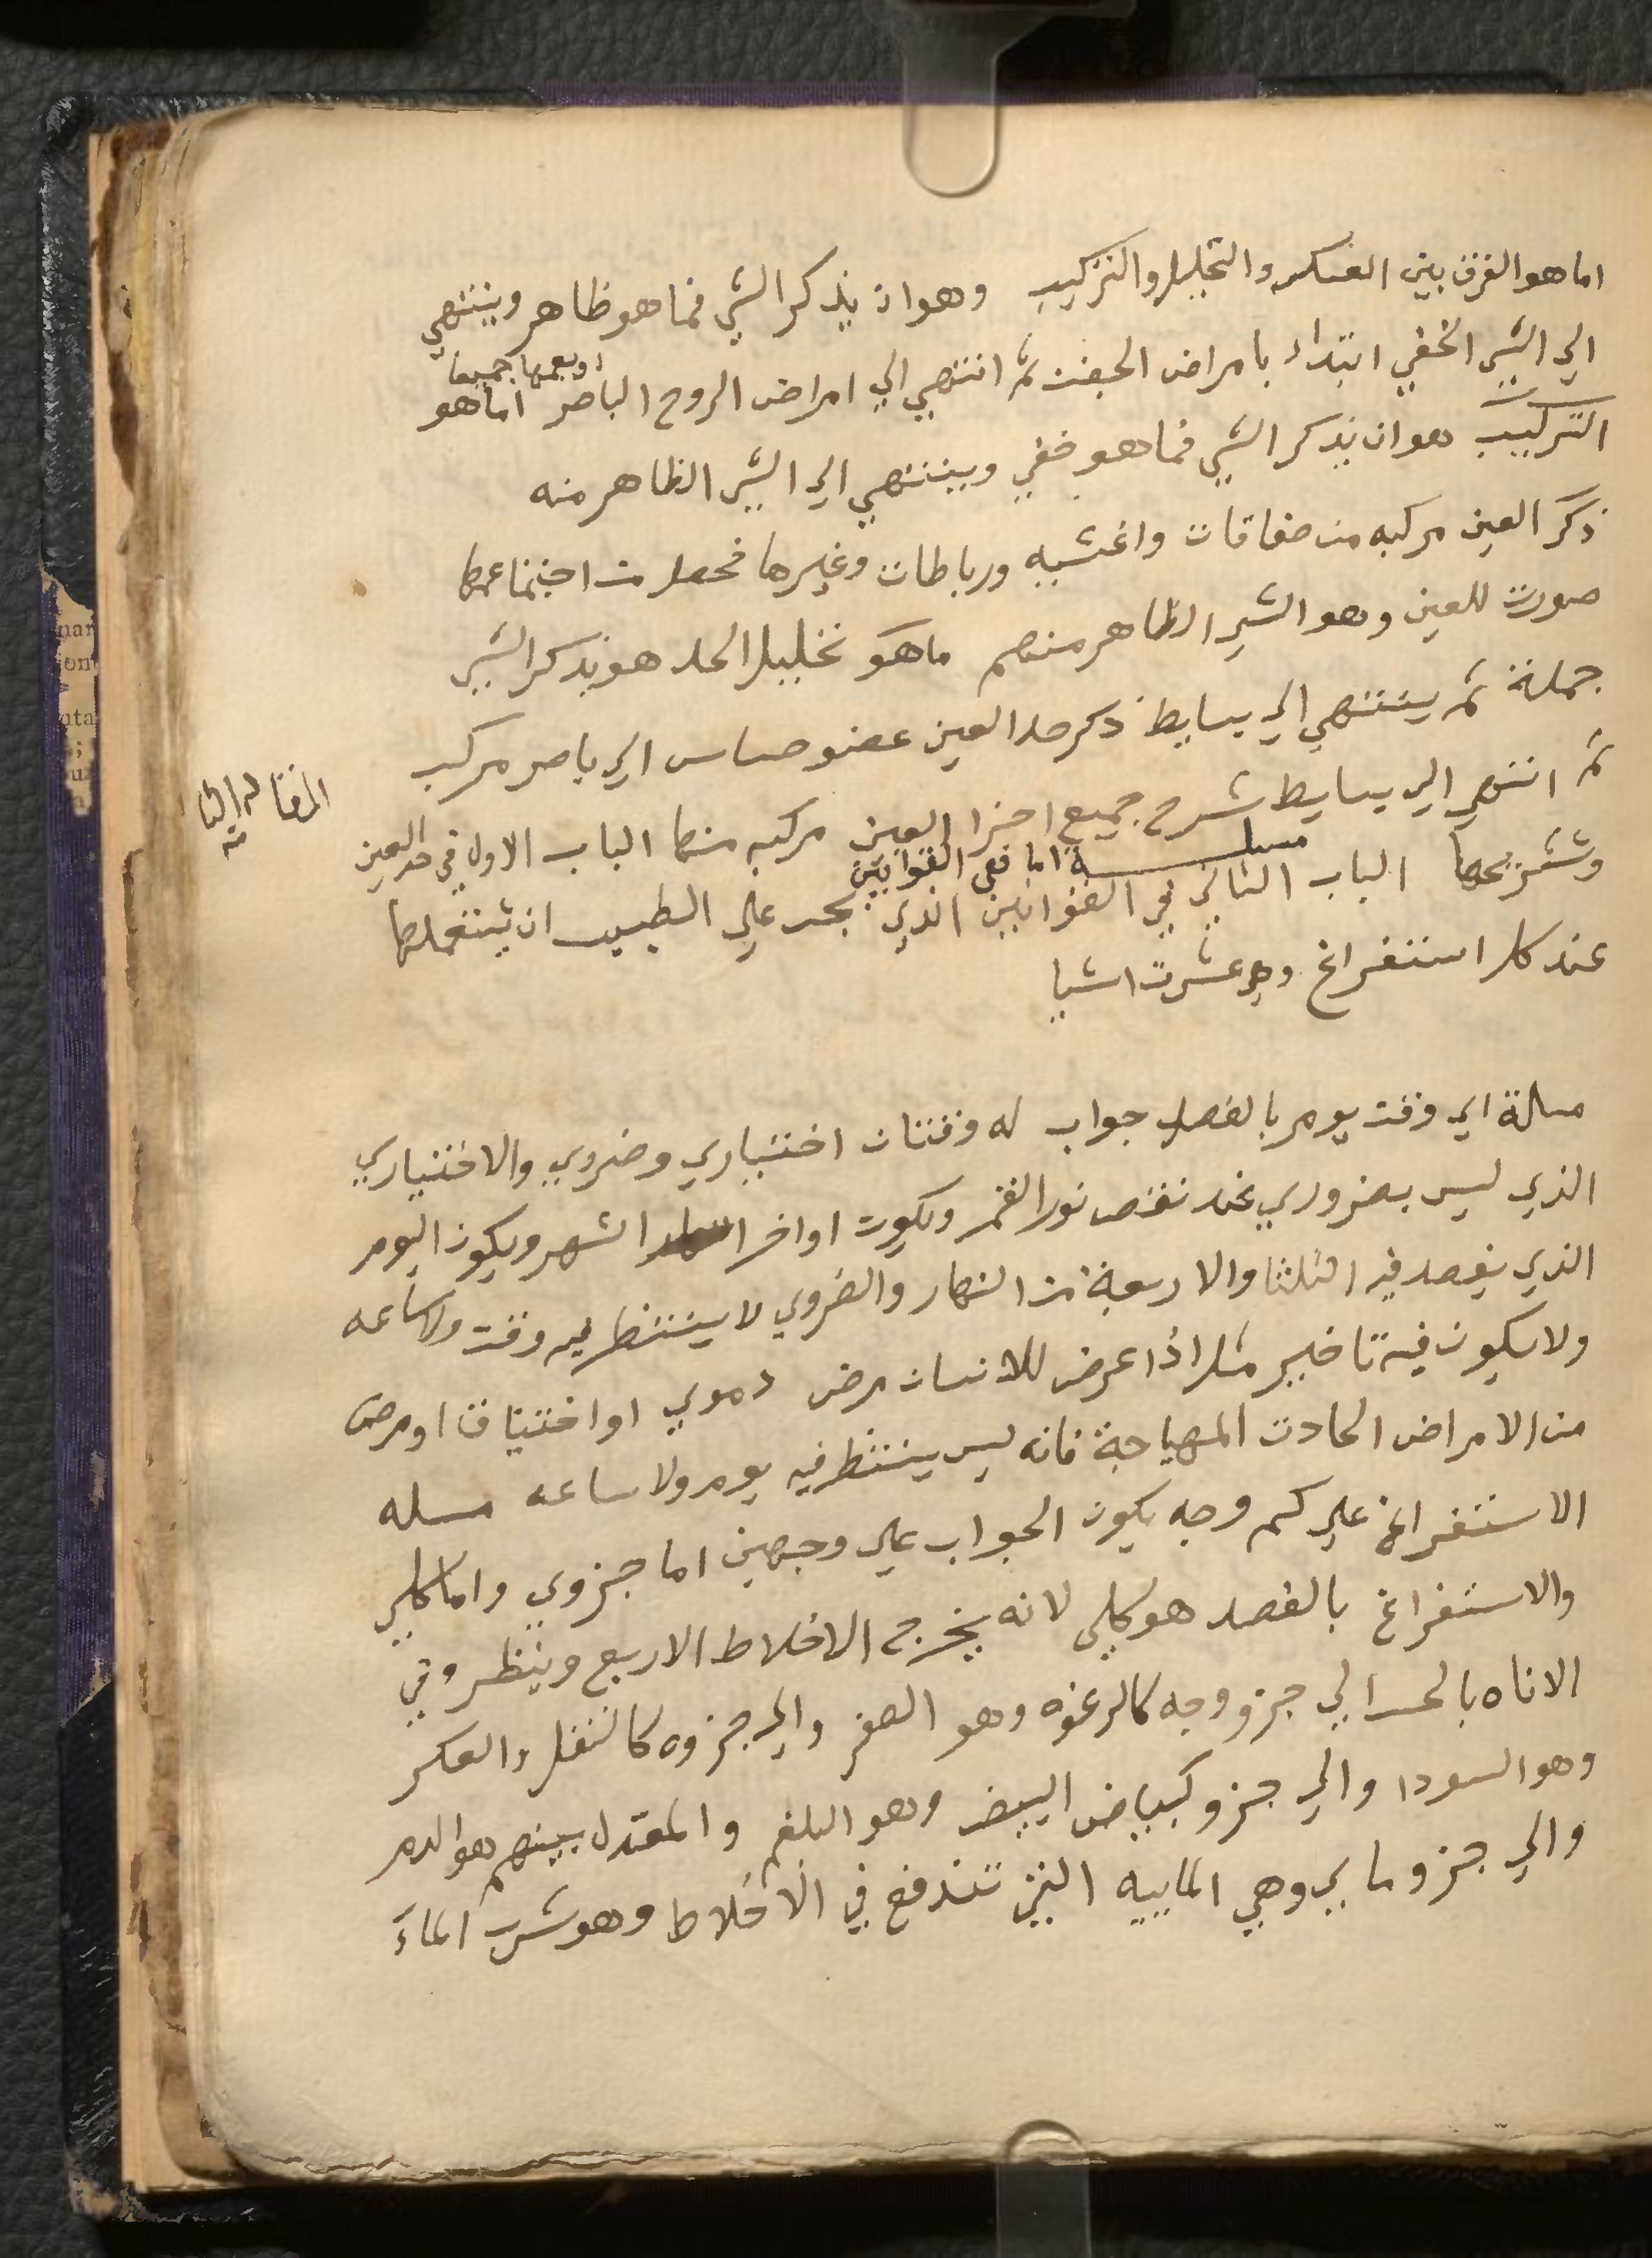 اما هو الفرق بين العكس والتحليل والتركيب وهو ان يذكر الشي فما هو ظاهر وينتهي
الي الشي الخفي ابتداء بامراض الجفن ثم انتهي الي امراض الروح الباصر اما هو
جميعا
التركيب هو ان يذكر الشي فما هو خفي وينتهي الي الشي الظاهر منه
ذكر العين مركبه من صفاقات واغشيه ورباطات وغيرها فحصلت من اجتماعها
صورت للعين وهو الشي الظاهر منهم ما هو تحليل الحد هو يذكر الشي
جملة ثم ينتهي الي بسايط ذكر حد العين عضو حساس الي باصر مركب
ثم انتهي الي بسايط شرح جميع اجزا العين مركبه منها الباب الاول في حد العين
المقاله الثانيه
مسلة اما هي القوانين
وتشريحها الباب الثاني في القوانين الذي يجب علي الطبيب ان يستعملها
عند كل استفراغ وهي عشرت اشيا
مسالة اي وقت يومر بالفصد جواب له وقتان اختياري وضروي والاختياري
الذي ليس بضروري عند نقص نور القمر ويكون اواخر الشهر ويكون اليوم
الذي يفصد فيه الثلثا والاربعة من النهار والضروي لا يستنظر فيه وقت ولا ساعه
ولا يكون فيه تاخير مثل اذا عرض للانسان مرض دموي او اختناق او مرض
من الامراض الحادت المهياجة فانه ليس يستنظر فيه يوم ولا ساعه مسله
الاستفراغ علي كم وجه يكون الجواب علي وجهين اما جزوي واما كلي
والاستفراغ بالفصد هو كلي لانه يخرج الاخلاط الاربع وينظر وفي
الاناه بالحس الي جزو وجه كالرغوه وهو الصفر والي جزوه كالثفل والعكر
وهو السودا والي جزو كبياض البيض وهو البلغم والمعتدل بينهم هو الدم
والي جزو مايي وهي الماييه التي تندفع في الاخلاط وهو شرب الماء